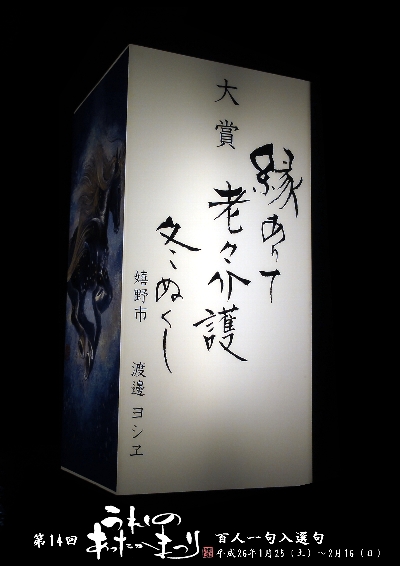 大賞
縁ありて
老々介護
冬ぬくし
嬉野市 渡邊ヨシヱ
第14回
うれしの
あったかまつり
百人一句入選句
平成26年1月25(土)~2月16(日)